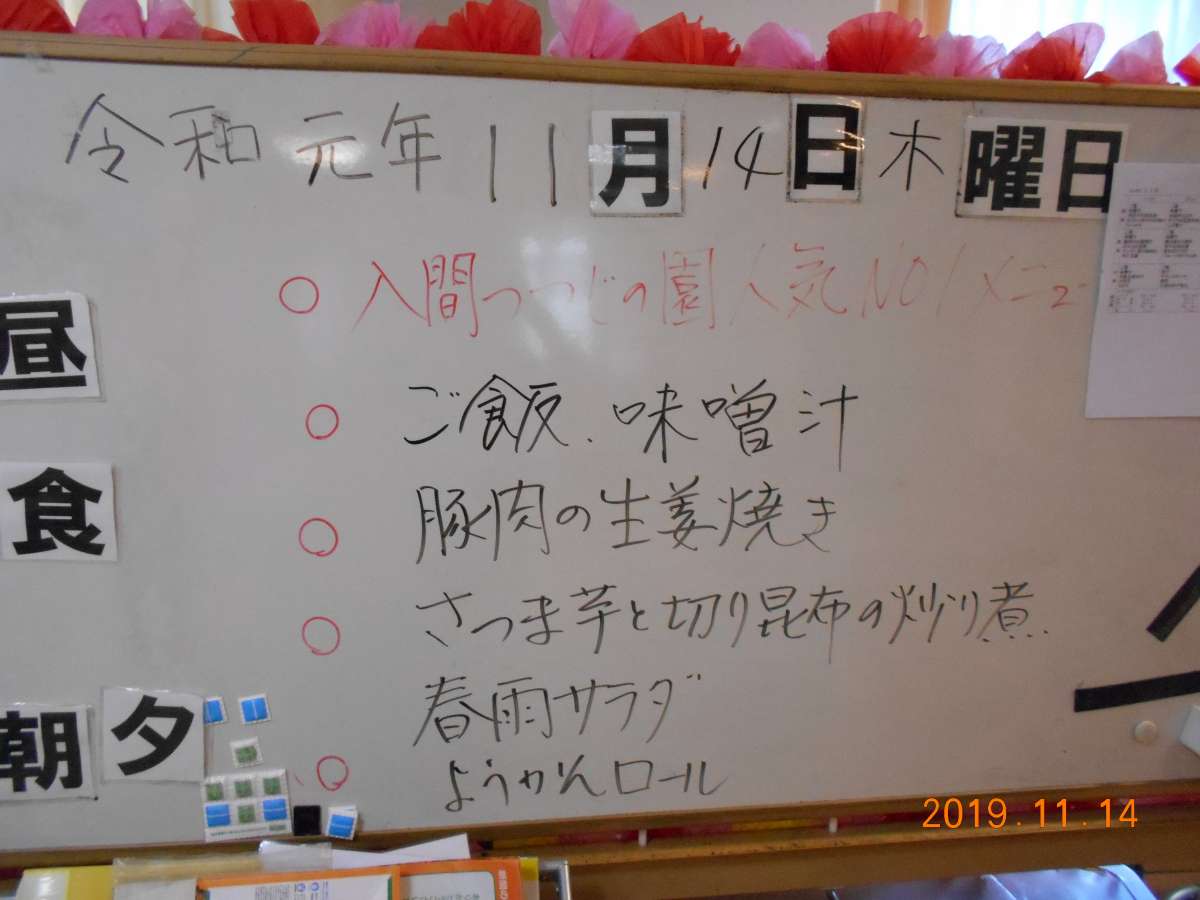 令和元年11月14日木曜日
○入間つつじの園人気NO1メニュー
昼食
○ご飯、味噌汁
○豚肉の生姜焼き
○さつま芋と切り昆布の炒り煮
春雨サラダ
○ようかんロール
朝夕
2019.11.14